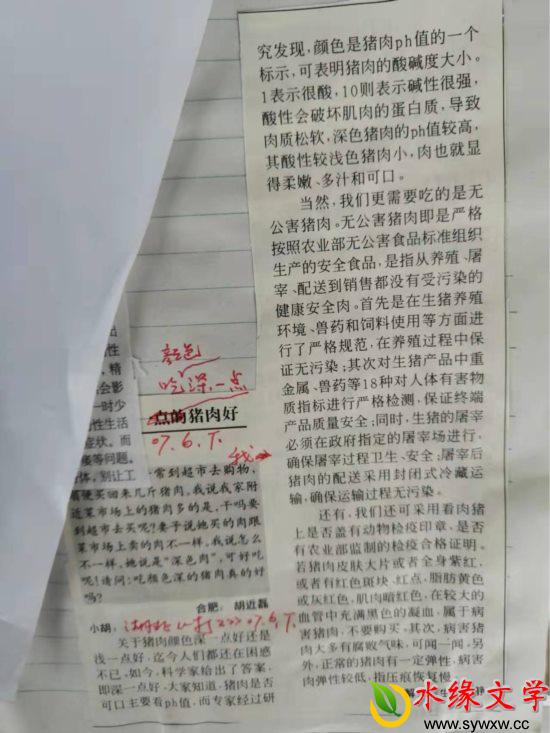 出
性
，精
会影
一时少
性生活
症状。而
痿等问题。
体，别让工
颜色
吃深一点
点的猪肉好
07.6.T.
我
常到超市去购物，
硬买回来几斤猪肉。我说我家附
近菜市场上的猪肉多的是，干吗要
到超市去买呢?妻子说她买的肉跟
菜市场上卖的肉不一样。我说怎么
不一样。她说是“深色肉”，可好吃
呢!请问:吃颜色深的猪肉真的好
吗?
合肥 胡近磊
小胡:
07.6.T.
关于猪肉颜色深一点好还是
浅一点好，迄今人们都还在困惑
不已。如今，科学家给出了答案，
即深一点好。大家知道，猪肉是否
可口主要看ph值，而专家经过研
究发现，颜色是猪肉ph值的一个
标示，可表明猪肉的酸碱度大小。
1表示很酸，10则表示碱性很强，
酸性会破坏肌肉的蛋白质，导致
肉质松软，深色猪肉的ph值较高，
其酸性较浅色猪肉小，肉也就显
得柔嫩、多汁和可口。
当然，我们更需要吃的是无
公害猪肉。无公害猪肉即是严格
按照农业部无公害食品标准组织
生产的安全食品，是指从养殖、屠
宰、配送到销售都没有受污染的
健康安全肉。首先是在生猪养殖
环境、兽药和饲料使用等方面进
行了严格规范，在养殖过程中保
证无污染;其次对生猪产品中重
金属、兽药等18种对人体有害物
质指标进行严格检测，保证终端
产品质量安全;同时，生猪的屠宰
必须在政府指定的屠宰场进行，
确保屠宰过程卫生、安全;屠宰后
猪肉的配送采用封闭式冷藏运
输，确保运输过程无污染。
还有，我们还可采用看肉猪
上是否盖有动物检疫印章、是否
有农业部监制的检疫合格证明。
若猪肉皮肤大片或者全身紫红，
或者有红色斑块、红点，脂肪黄色
或灰红色，肌肉暗红色，在较大的
血管中充满黑色的凝血，属于病
害猪肉，不要购买，其次，病害猪
肉大多有腐败气味，可闻一闻;另
外，正常的猪肉有一定弹性，病害
肉弹性较低，指压痕恢复慢。
水缘文学
www.sywxw.com